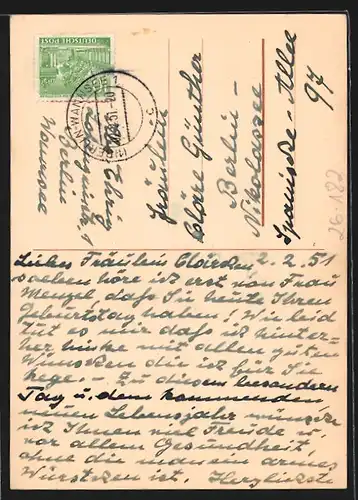 DEUTSCHE POST
BERLIN-WANNSEE 1
Berlin
Wannsee
Fräulein
Cläre Günther
Berlin-
Nikolassee
Spanische-Allee
97
26-182
Liebes Fräulein 2.2.51
soeben höre ich erst von Frau
Menzel, dass Sie heute Ihren
Geburtstag haben! Wie leid
tut es mir dass ich hinter-
her hinke mit allen guten
Wünschen die ich für Sie
hege. Zu diesem besonderen
Tag u. dem kommenden
neuen Lebensjahr wünsche
ich Ihnen viel Freude u.
vor allem Gesundheit,
ohne die man ein armes
Würstchen ist. Herzlichste